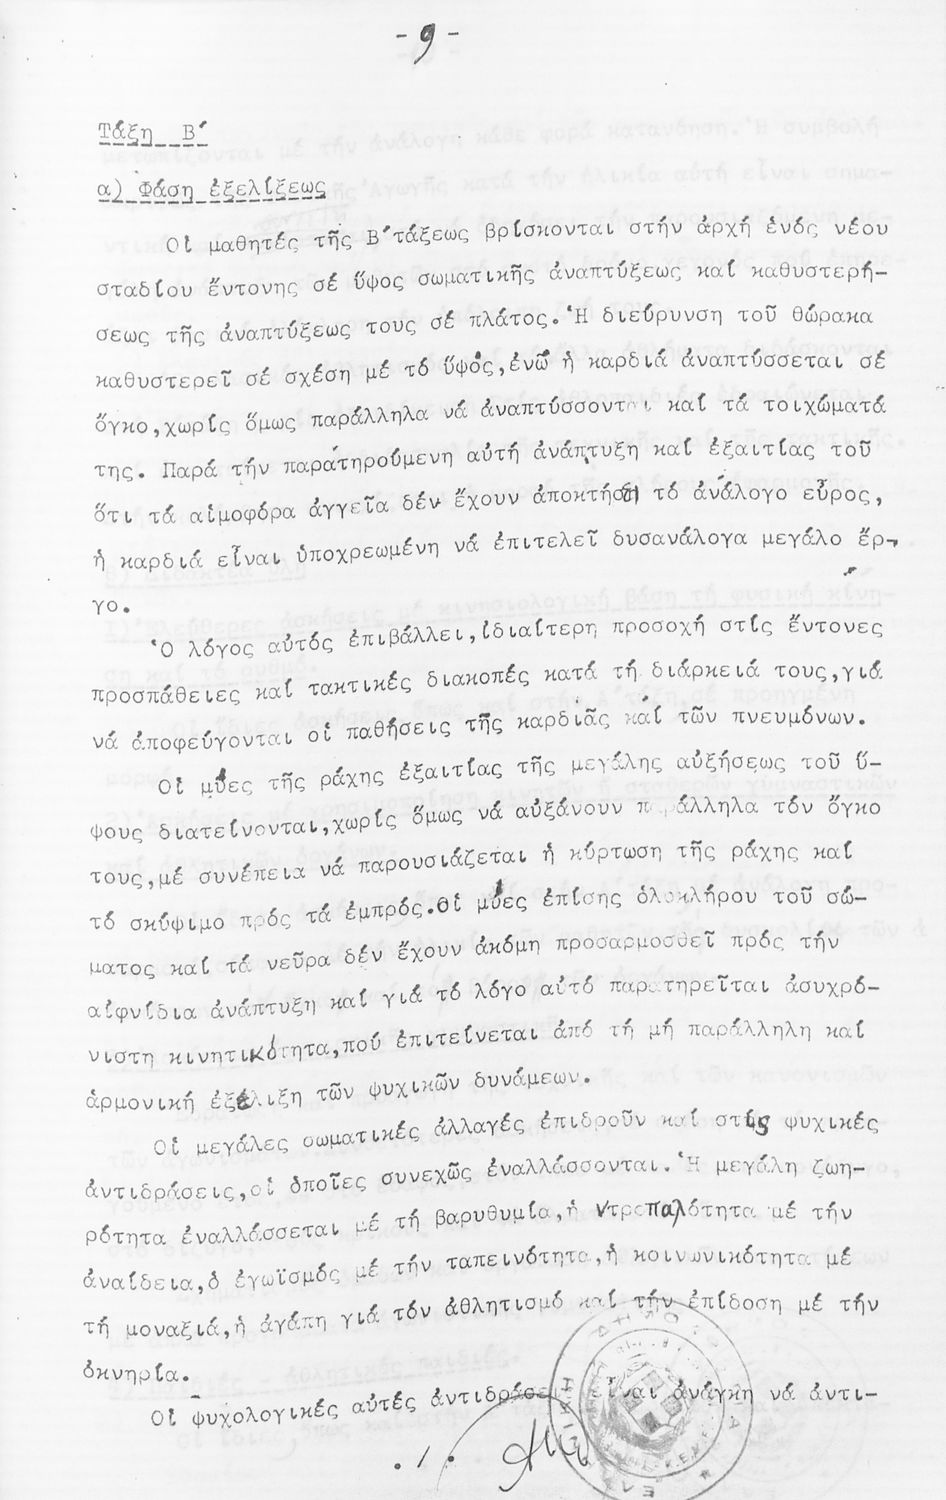 - 9 -
Τάξη Β΄
α) Φάση ἐξελίξεως
Οἱ μαθητές τῆς Β΄τάξεως βρίσκονται στήν ἀρχή ἑνός νέου
σταδίου ἔντονης σέ ὕψος σωματικῆς ἀναπτύξεως καί καθυστερή-
σεως τῆς ἀναπτύξεως τους σέ πλάτος. Ἡ διεύρυνση τοῦ θώρακα
καθυστερεῖ σέ σχέση μέ τό ὕψος, ἐνῶ ἡ καρδιά ἀναπτύσσεται σέ
ὄγκο, χωρίς ὅμως παράλληλα νά ἀναπτύσσονται καί τά τοιχώματά
της. Παρά τήν παρατηρούμενη αὐτή ἀνάπτυξη καί ἐξαιτίας τοῦ
ὅτι τά αἱμοφόρα ἀγγεῖα δέν ἔχουν ἀποκτήσει τό ἀνάλογο εὖρος,
ἡ καρδιά εἶναι ὑποχρεωμένη νά ἐπιτελεῖ δυσανάλογα μεγάλο ἔρ-
γο.
Ὁ λόγος αὐτός ἐπιβάλλει, ἰδιαίτερη προσοχή στίς ἔντονες
προσπάθειες καί τακτικές διακοπές κατά τή διάρκειά τους, γιά
νά ἀποφεύγονται οἱ παθήσεις τῆς καρδιᾶς καί τῶν πνευμόνων.
Οἱ μύες τῆς ράχης ἐξαιτίας τῆς μεγάλης αὐξήσεως τοῦ ὕ-
ψους διατείνονται, χωρίς ὅμως νά αὐξάνουν παράλληλα τόν ὄγκο
τους, μέ συνέπεια νά παρουσιάζεται ἡ κύρτωση τῆς ράχης καί
τό σκύψιμο πρός τά ἐμπρός. Οἱ μύες ἐπίσης ὁλοκλήρου τοῦ σώ-
ματος καί τά νεῦρα δέν ἔχουν ἀκόμη προσαρμοσθεῖ πρός τήν
αἰφνίδια ἀνάπτυξη καί γιά τό λόγο αὐτό παρατηρεῖται ἀσυχρό-
νιστη κινητικότητα, πού ἐπιτείνεται ἀπό τή μή παράλληλη καί
ἁρμονική ἐξέλιξη τῶν ψυχικῶν δυνάμεων.
Οἱ μεγάλες σωματικές ἀλλαγές ἐπιδροῦν καί στίς ψυχικές
ἀντιδράσεις, οἱ ὁποῖες συνεχῶς ἐναλλάσσονται. Ἡ μεγάλη ζωη-
ρότητα ἐναλλάσσεται μέ τή βαρυθυμία, ἡ ντροπαλότητα μέ τήν
ἀναίδεια, ὁ ἐγωϊσμός μέ τήν ταπεινότητα, ἡ κοινωνικότητα μέ
τή μοναξιά, ἡ ἀγάπη γιά τόν ἀθλητισμό καί τήν ἐπίδοση μέ τήν
ὀκνηρία.
Οἱ ψυχολογικές αὐτές ἀντιδράσεις εἶναι ἀνάγκη νά ἀντι-
./.